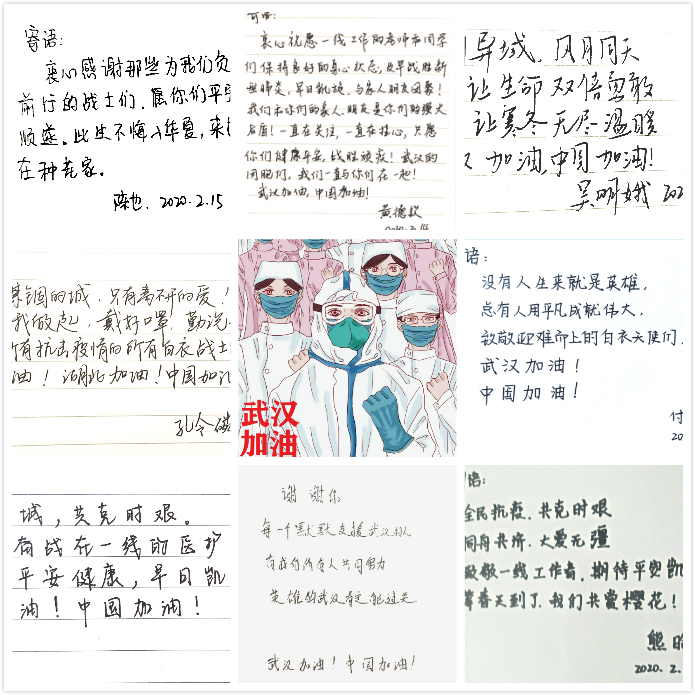 寄语:
衷心感谢那些为我们负
前行的战士们.愿你们平
顺遂.此生不悔入华夏,来
在种花家.
2020.2.15
寄语:
衷心祝愿一线工作的老师和同学
们保持良好的身心状态,及早战胜新
冠肺炎,早日凯旋,与家人朋友团聚!
我们和你们的家人、朋友是你们的强大
后盾!一直在关注,一直在挂心,只愿
你们健康平安,战胜疫!武汉的
同胞们,我们一直与你们在一起!
武汉加油,中国加油!
黄德
异域,风月同天
让生命双倍勇敢
让寒冬无尽温暖
加油,中国加油!
吴明娥 202
的城,只有离不开的爱!
我做起,戴好口罩,勤洗
所有抗击疫情的所有白衣战士
油!湖北加油!中国加
孔令
武汉
加油
语:
没有人生来就是英雄,
总有人用平凡成就伟大,
致敬迎难而上的白衣天使们.
武汉加油!
中国加油!
付
20
城,共克时艰。
有战在一线的医护
平安健康,早日凯
油!中国加油!
谢谢你
每一个默默支援武汉的人
有我们所有人共同努力
英雄的武汉肯定能过关
武汉加油!中国加油!
语:
全民抗疫,共克时艰
同舟共济,大爱无疆
致敬一线工作者,期待平安凯
等春天到了,我们共赏樱花!
熊
2020.2.